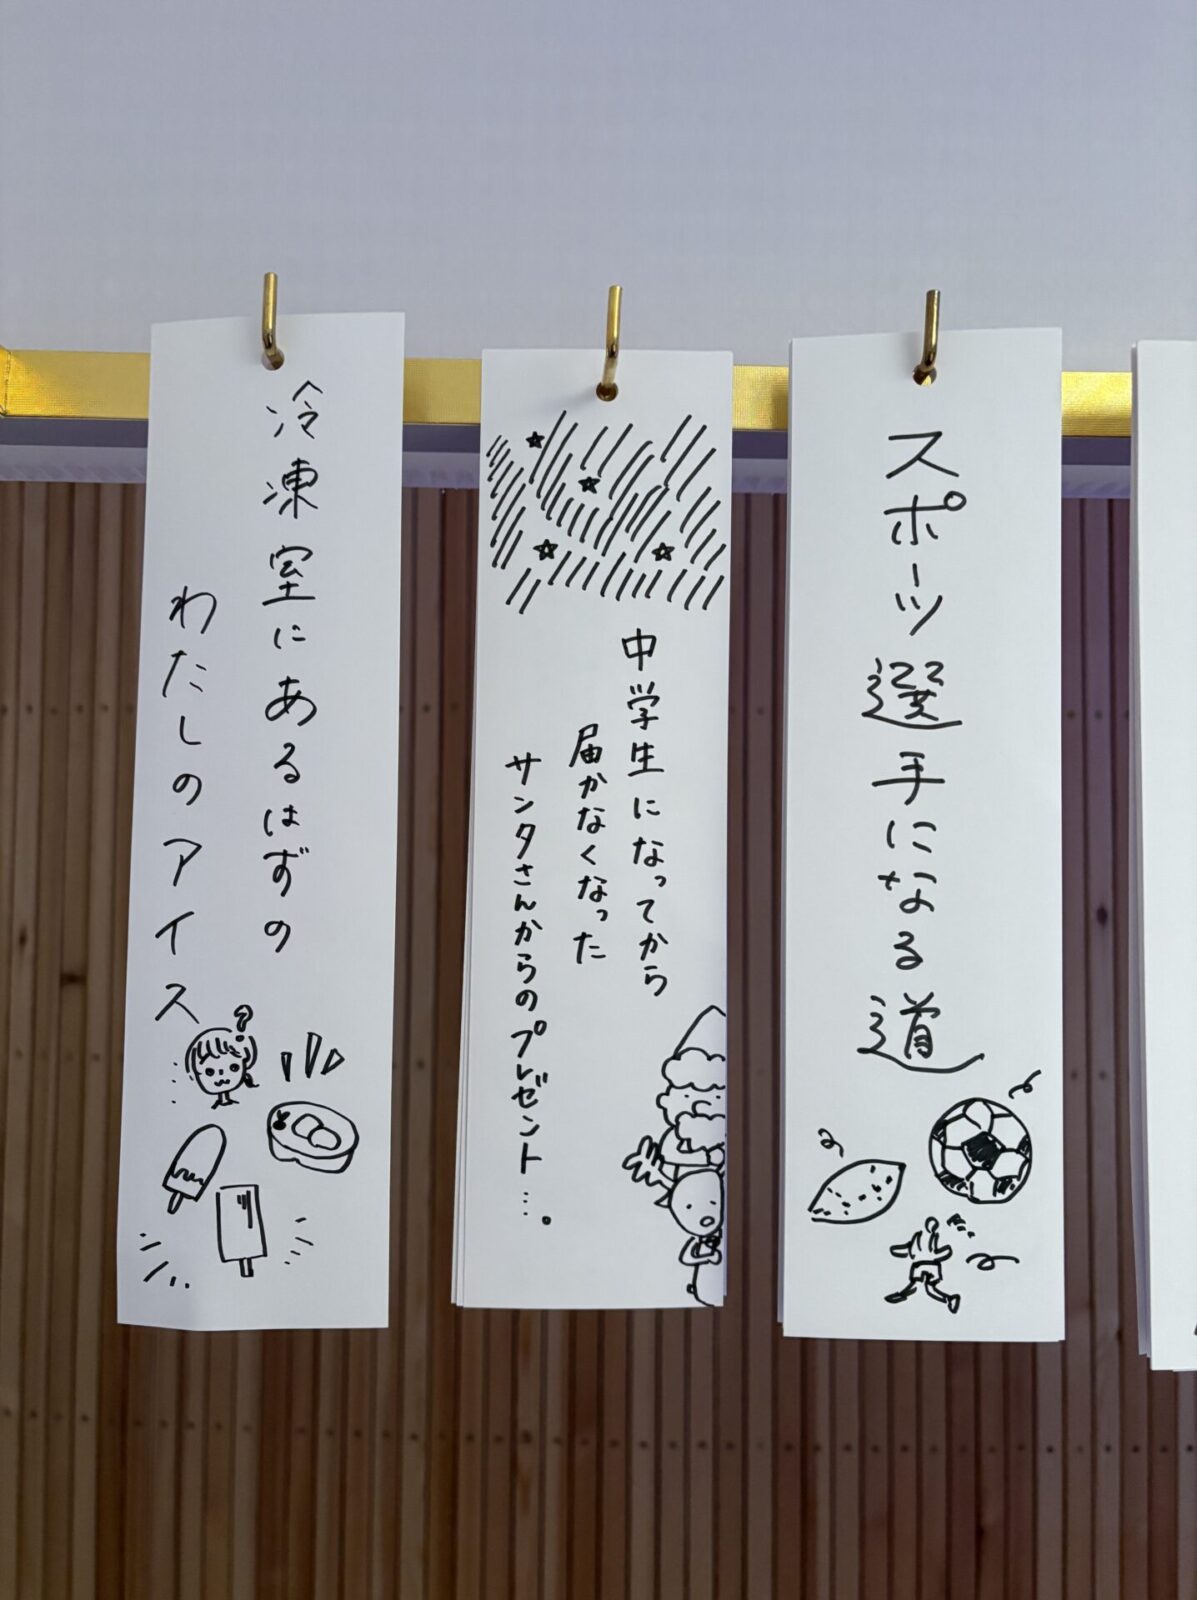 冷凍室にあるはずの
わたしのアイス
?
中学生になってから
届かなくなった
サンタさんからのプレゼント…。
スポーツ選手になる道